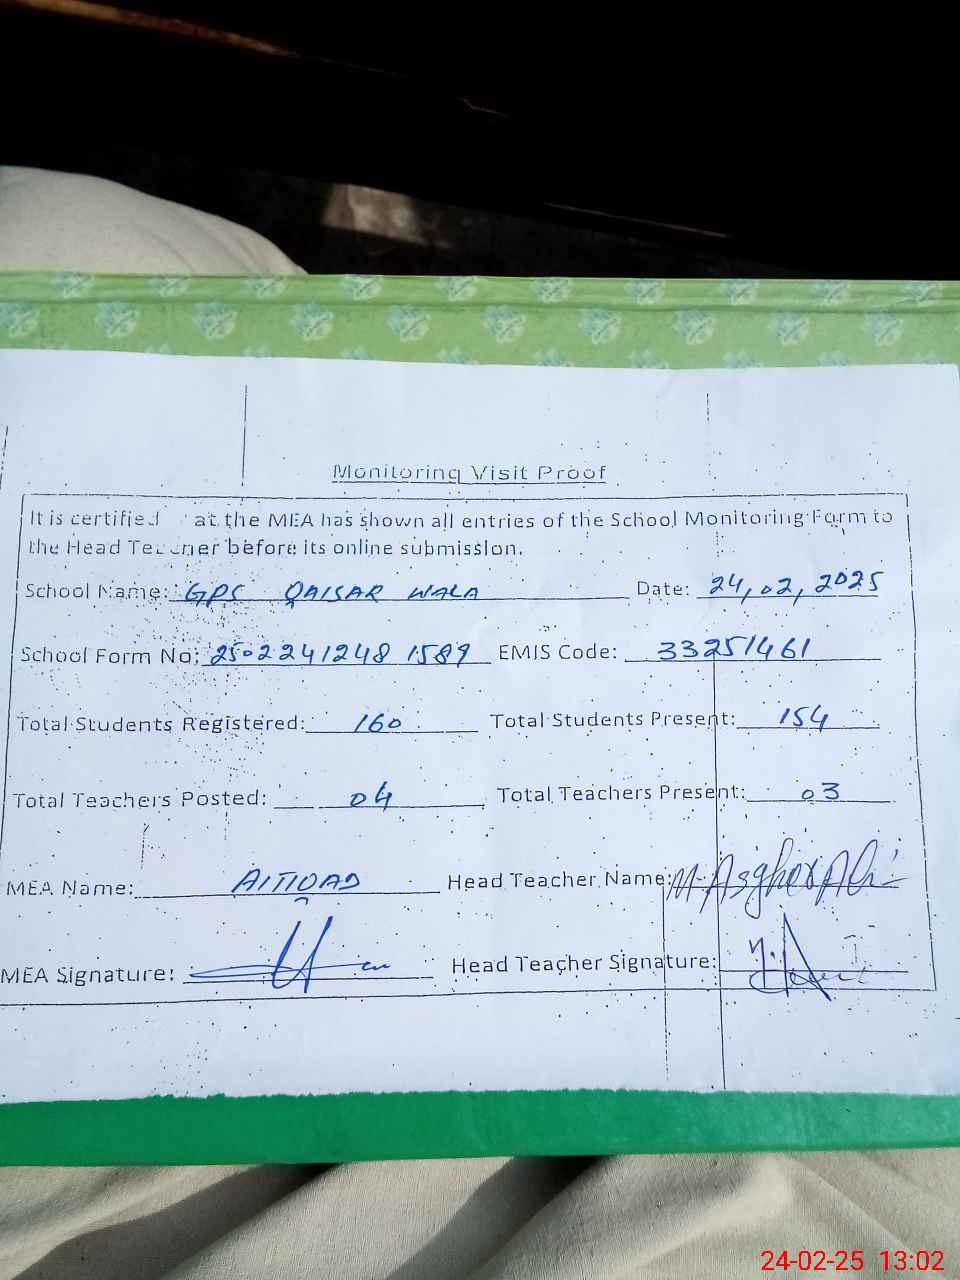 Monitoring Visit Proof
It is certified at the MEA has shown all entries of the School Monitoring Form to
the Head Teacher before its online submission.
School Name: GPS QAISAR WALA Date: 24,02,2025
School Form No: 2502241248 1589 EMIS Code: 33251461
Total Students Registered: 160 Total Students Present: 154
Total Teachers Posted: 04 Total Teachers Present: 03
MEA Name: Head Teacher Name: M Asgher Ali
MEA Signature: Head Teacher Signature:
24-02-25 13:02